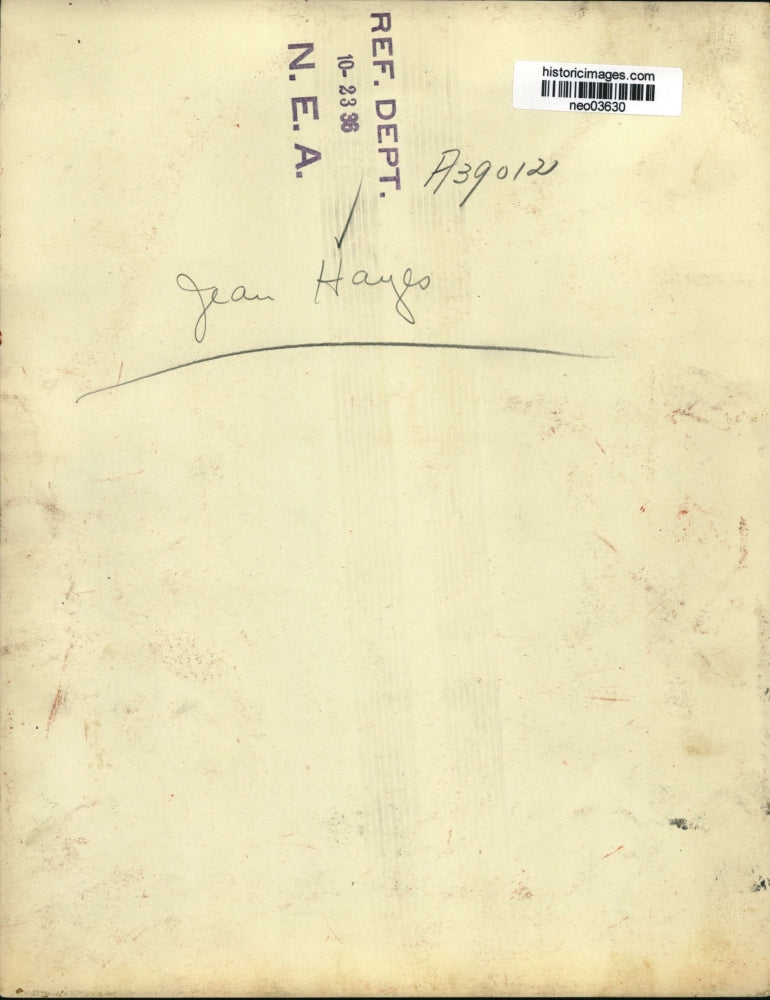 historicimages.com
neo03630
REF. DEPT.
10-23 36
N. E. A.
A39012
Jean Hayes